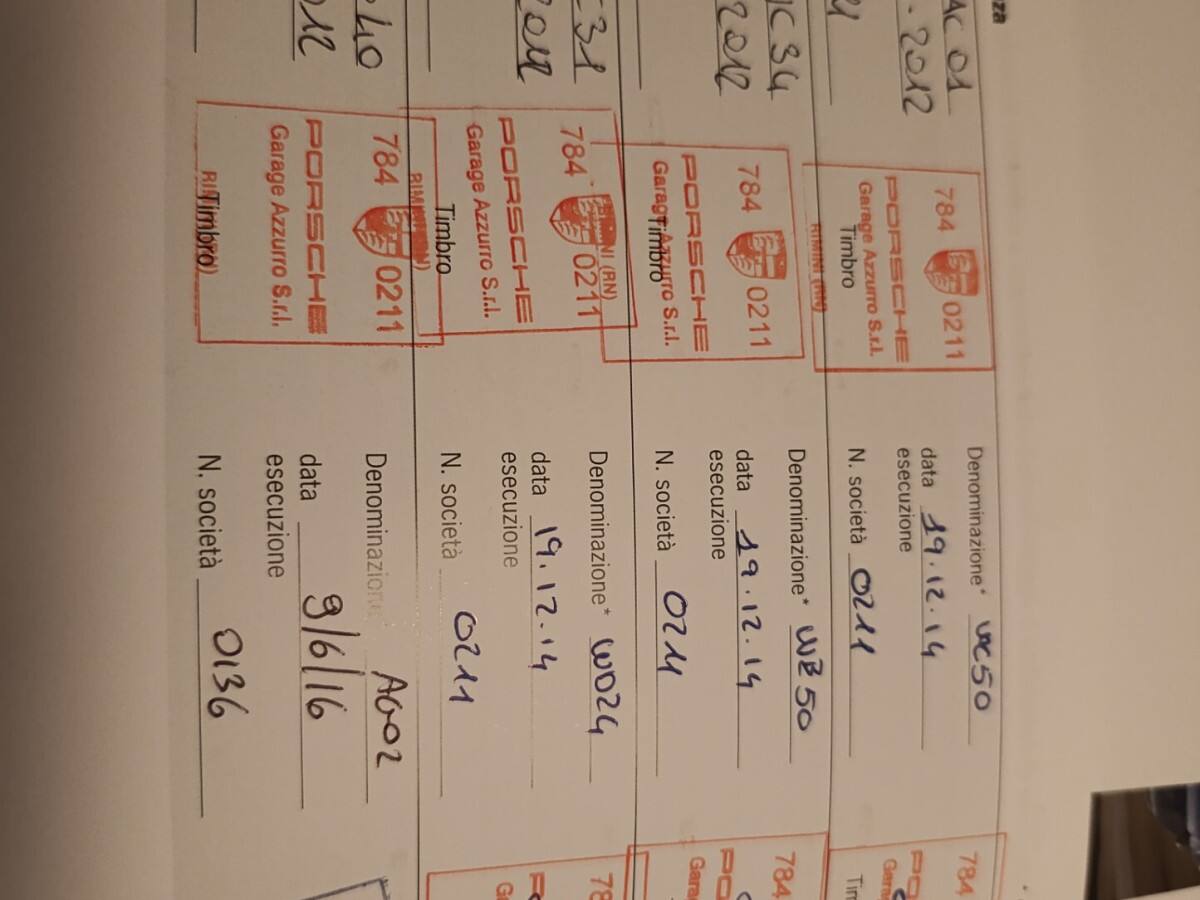 za
AC 01
. 2012
C34
2012
C31
2012
40
012
784 0211
PORSCHE
Garage Azzurro S.r.l.
Timbro
RIMINI (RN)
784 0211
PORSCHE
Garage Azzurro S.r.l.
Timbro
RIMINI (RN)
784 0211
PORSCHE
Garage Azzurro S.r.l.
Timbro
RIMINI (RN)
784 0211
PORSCHE
Garage Azzurro S.r.l.
Timbro
Denominazione*
data 19.12.14
esecuzione
N. società 0211
Denominazione* WB50
data 19.12.14
esecuzione
N. società 0211
Denominazione* WD24
data 19.12.14
esecuzione
N. società 0211
Denominazione AG02
data 9/6/16
esecuzione
N. società 0136
784
PO
Garag
Tim
784
PO
Garag
78
P
Ga